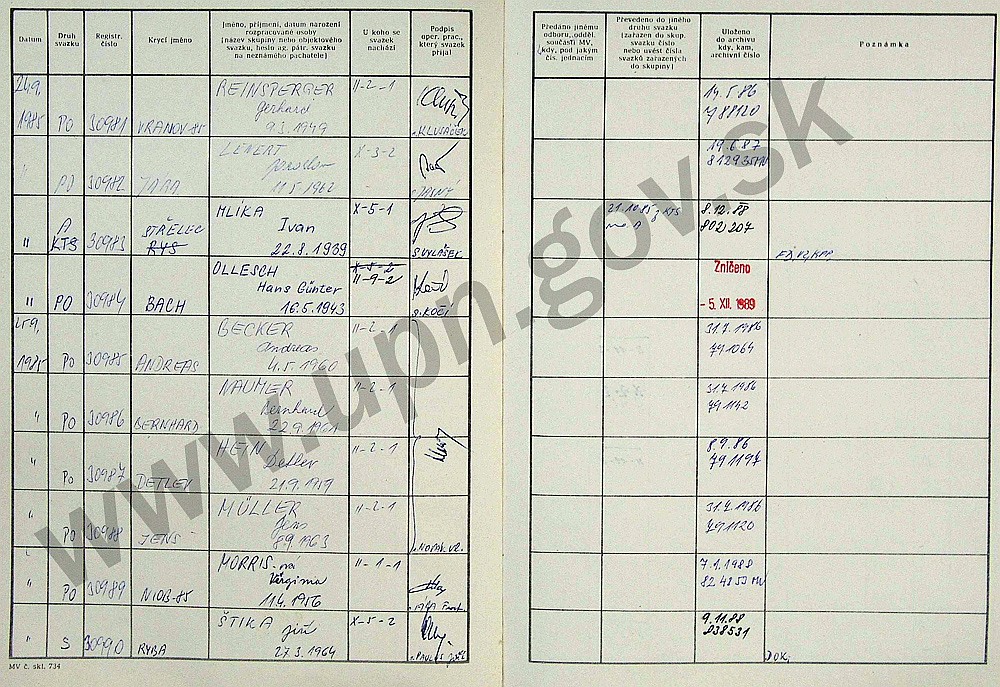 Datum
Druh svazku
Registr. číslo
Krycí jméno
Jméno, příjmení, datum narození
rozpracované osoby
(název skupiny nebo objektového
svazku, heslo ag. pátr. svazku
na neznámého pachatele)
U koho se svazek nachází
Podpis oper. prac., který svazek přijal
Předáno jinému
odboru, odděl.
součásti MV,
kdy, pod jakým
čís. jednacím
Převedeno do jiného
druhu svazku
(zařazen do skup.
svazku číslo
nebo uvést čísla
svazků zařazených
do skupiny)
Uloženo
do archivu
kdy, kam,
archivní číslo
Poznámka
24.9. REINSPERGER II-2-1 14.5.86
1985 PO 30981 VRANOV-85 Gerhard 788120
9.3.1949 KLUSÁČEK
LENERT X-3-2 19.6.87
30982 JARA Jaroslav
11.5.1962 JASNÝ
A HLÍKA X-5-1 21.10.85 8.12.88
" KTS 30983 STŘELEC Ivan 802207
RYS 22.8.1939 SVYLÁŠEK
OLLESCH X-5-2 Zničeno
Hans Günter II-9-2
" PO 30984 BACH 16.5.1943 KOČÍ - 5. XII. 1989
25.9. BECKER II-2-1 31.7.1986
1985 PO 30985 ANDREAS Andreas 791064
4.5.1960
" NAUMER II-2-1 31.7.1986
PO 30986 BERNHARD Bernhard 791142
22.9.1961
" HEIN II-2-1 8.9.86
PO 30987 DETLEV Detlev 791197
21.9.1959
" MÜLLER II-2-1 31.7.1986
PO 30988 JENS Jens 791120
8.9.1963
" MORRIS-ná II-1-1 7.1.1988
PO 30989 NIOB-85 Virginia
11.4.1956
" ŠTIKA X-5-2 9.11.88
S 30990 RYBA Jiří 838531
27.3.1964
MV č. skl. 734
www.upn.gov.sk